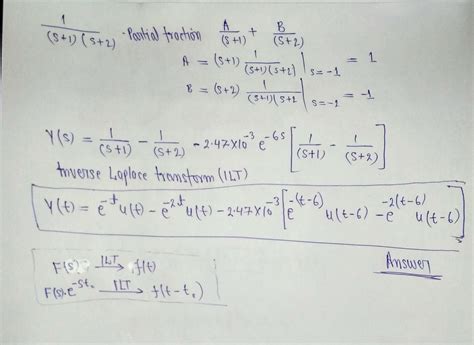 1/((s+1)(s+2)) . Partial fraction A/(s+1) + B/(s+2)
A = (s+1) 1/((s+1)(s+2)) | s=-1 = 1
B = (s+2) 1/((s+1)(s+2 | s=-1 = -1
Y(s) = 1/(s+1) - 1/(s+2) - 2.47×10^-3 e^-6s [1/(s+1) - 1/(s+2)]
Inverse Laplace transform (ILT)
Y(t) = e^-t u(t) - e^-2t u(t) - 2.47×10^-3 [e^-(t-6) u(t-6) - e^-2(t-6) u(t-6)]
Answer
F(s) ILT→ f(t)
F(s).e^-st₀ ILT→ f(t-t₀)